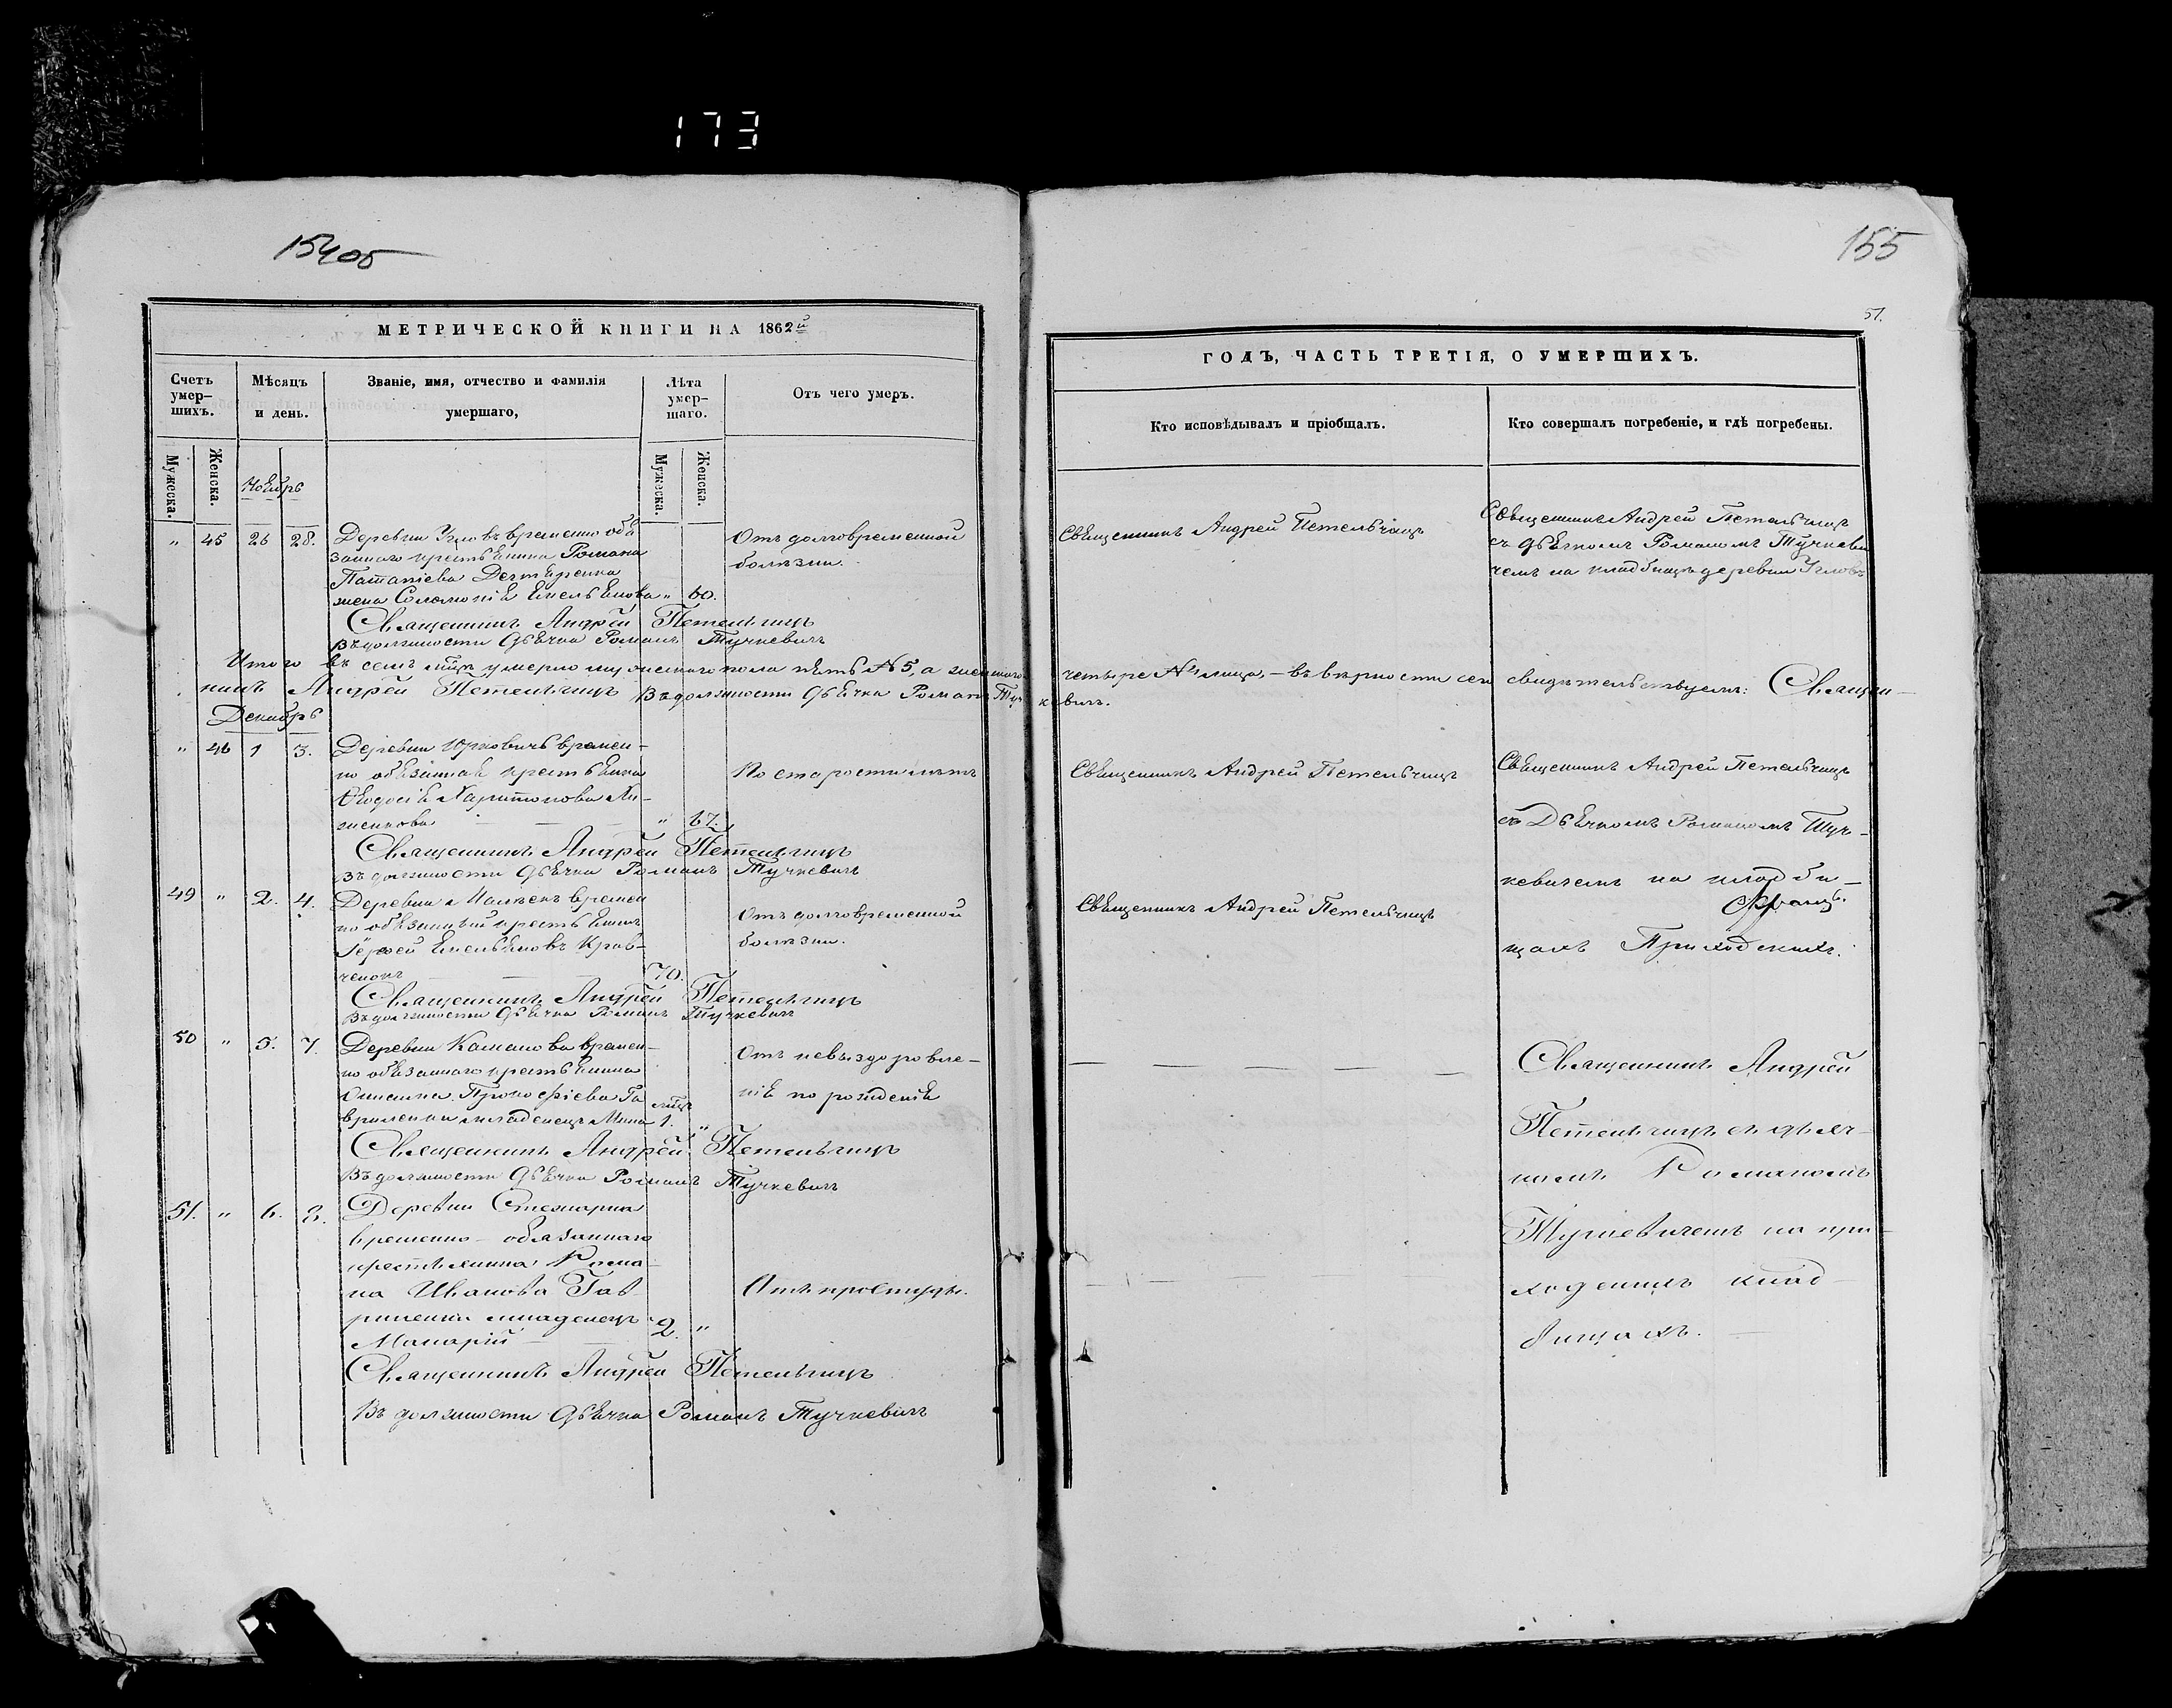 173
154 об
155
51.
МЕТРИЧЕСКОЙ КНИГИ НА 1862й
ГОДЪ, ЧАСТЬ ТРЕТІЯ, О УМЕРШИХЪ.
Счетъ умер-
шихъ.
Мѣсяцъ
и день.
Званіе, имя, отчество и фамилія
умершаго,
Лѣта
умер-
шаго.
Отъ чего умеръ.
Кто исповѣдывалъ и пріобщалъ.
Кто совершалъ погребеніе, и гдѣ погребены.
Мужеска.
Женска.
Мужеска.
Женска.
Ноябрь
" 45 26 28.
Деревни Угловъ временно обя
заннаго крестьянина Романа
жена Соломонія Емельянова " 60.
Отъ долговременной
болѣзни.
Священникъ Андрей Петельчицъ
Священникъ Андрей Петельчицъ
съ дьячкомъ Романомъ Тучкеви
чемъ на кладбищѣ деревни Угловъ
Священникъ Андрей Петельчицъ
Въ должности Дьячка Романъ Тучкевичъ
Итого въ семъ мцѣ умерло мужескаго пола пять № 5, а женскаго четыре № 4 лица, – въ вѣрности сей свидѣтельствуемъ: Священ–
никъ Андрей Петельчицъ Въ должности Дьячка Романъ Туч кевичъ.
Декабрь
" 46 1 3.
Деревни Юрковичь времен–
но обязанная крестьянка
Ѳеодосія Харитонова
" 67.
По старости лѣтъ
Священникъ Андрей Петельчицъ
Священникъ Андрей Петельчицъ
съ Дьячкомъ Романомъ Туч–
кевичемъ на кладби–
щахъ Приходскихъ.
Священникъ Андрей Петельчицъ
Въ должности Дьячка Романъ Тучкевичъ
49 " 2. 4.
Деревни времен
но обязанный крестьянинъ
Емельяновъ Крав–
ченокъ – – 70.
Отъ долговременной
болѣзни.
Священникъ Андрей Петельчицъ
Священникъ Андрей Петельчицъ
Въ должности Дьячка Романъ Тучкевичъ
50 " 5. 7.
Деревни времен–
но обязаннаго крестьянина
Прокофіева Га
врилен младенецъ Мина 1. "
Отъ невыздоровле–
нія по рожденія
Священникъ Андрей
Петельчицъ съ дьяч–
комъ Романомъ
Тучкевичемъ на при–
ходскихъ клад–
бищахъ. –
Священникъ Андрей Петельчицъ
Въ должности Дьячка Романъ Тучкевичъ
51. " 6. 8.
Деревни
временно – обязаннаго
крестьянина Рома–
на Иванова Гав
младенецъ 2. "
Макарій –
Отъ простуды.
Священникъ Андрей Петельчицъ
Въ должности Дьячка Романъ Тучкевичъ